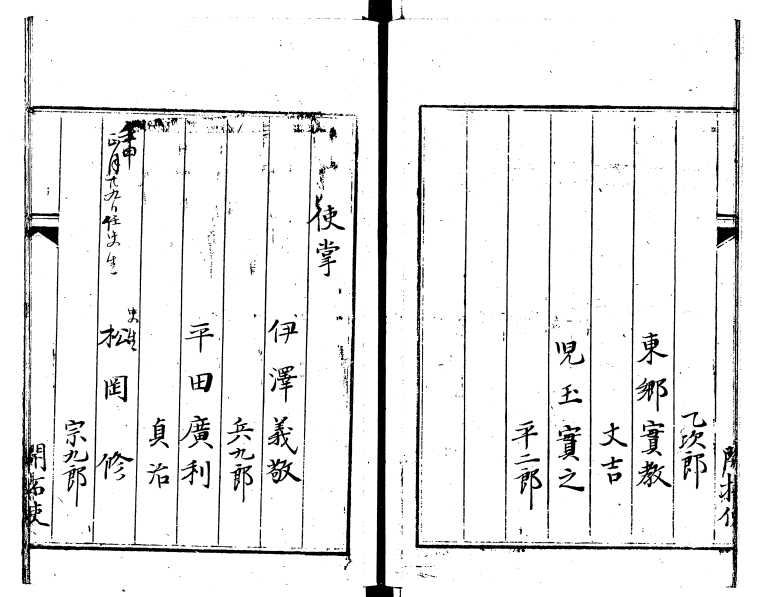 乙次郎
東郷實教
丈吉
児玉實之
平二郎
使掌
伊澤義敬
兵九郎
平田廣利
貞治
史生
松岡修
正月十九日任史生
宗九郎
開拓使